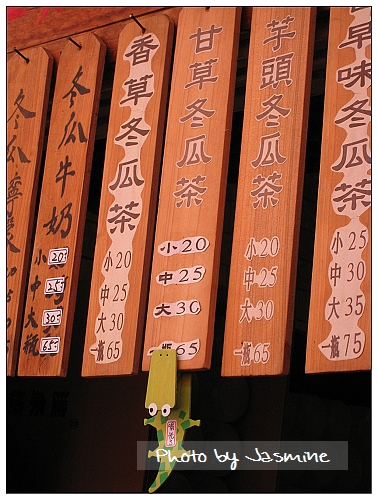 冬瓜
冬瓜牛奶
小20
中25
大30
瓶65
香草冬瓜茶
小20
中25
大30
一瓶65
甘草冬瓜茶
小20
中25
大30
一瓶65
芋頭冬瓜茶
小20
中25
大30
一瓶65
早味冬瓜茶
小25
中30
大35
一瓶75
Photo by Jasmine